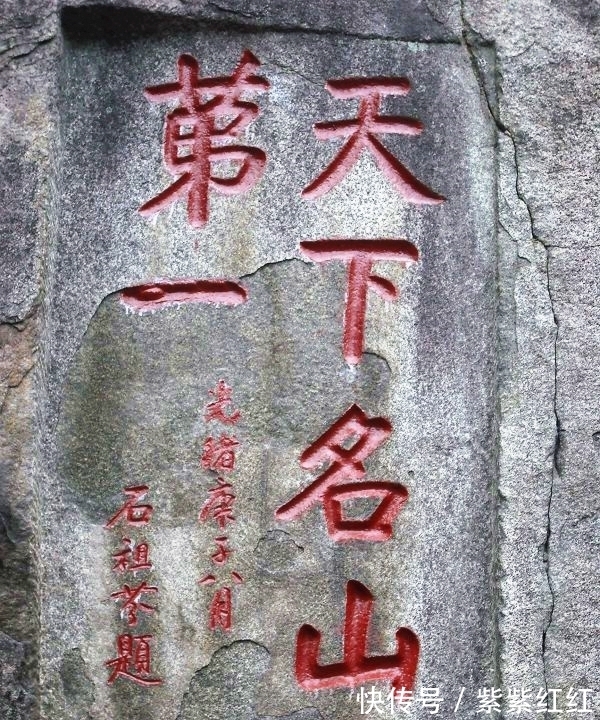 天下名山
第一
光绪庚子八月
石祖芬題
快传号 / 紫紫红红